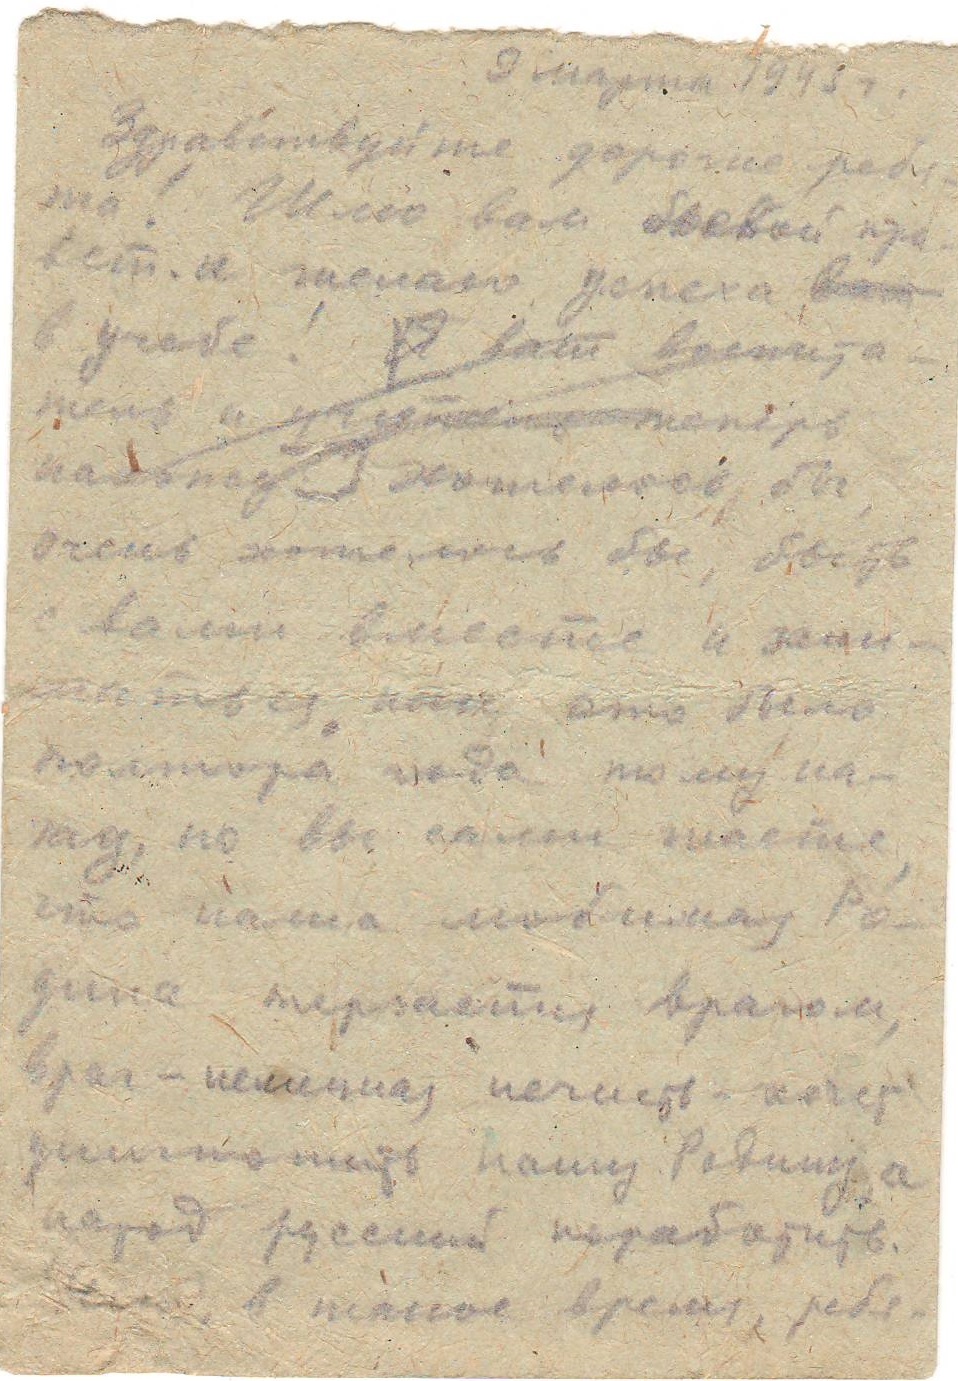 9 марта 1943 г.
Здравствуйте дорогие ребя-
та! Шлю вам боевой при-
вет и желаю успеха
в учебе! Я ваш воспита-
тель и теперь
Хотелось бы,
очень хотелось бы, быть
с вами вместе и зани-
маться, как это было
полтора года тому на-
зад, но вы сами знаете,
что наша любимая Ро-
дина терзается врагом,
враг - немецкая нечисть - хочет
уничтожить нашу Родину, а
народ русский поработить.
в такое время, ребя-